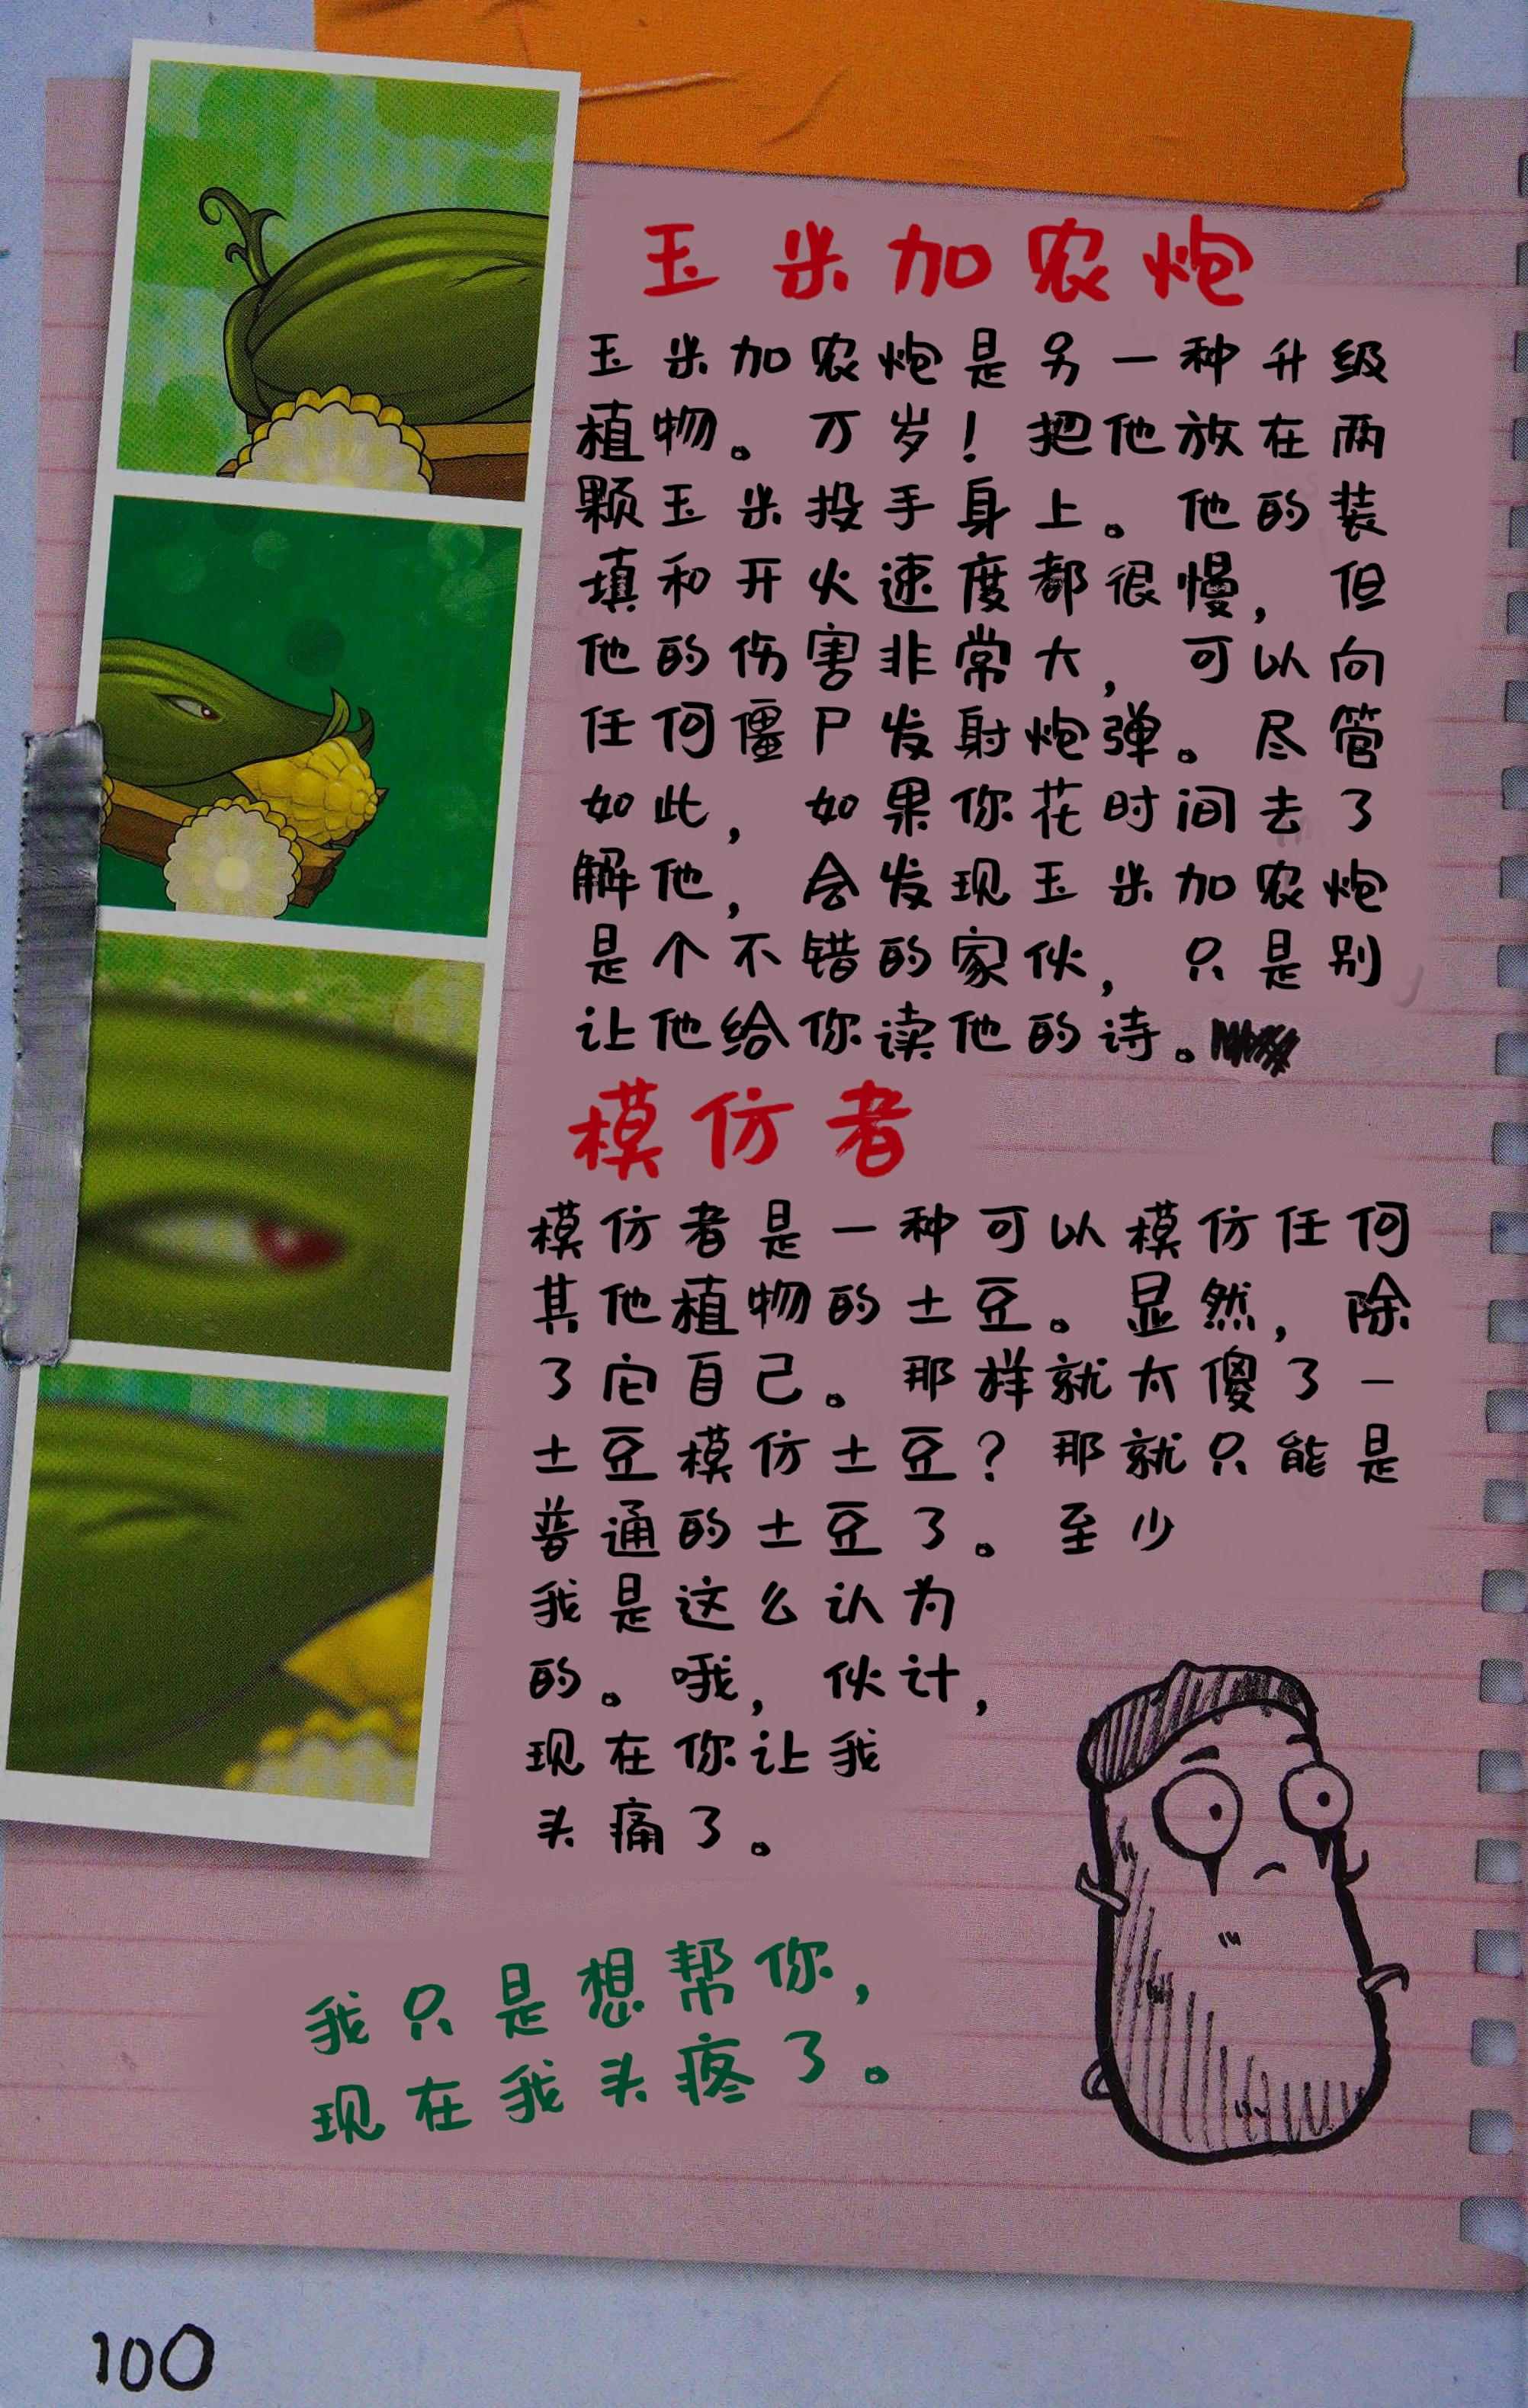 玉米加农炮
玉米加农炮是另一种升级
植物。万岁！把他放在两
颗玉米投手身上。他的装
填和开火速度都很慢，但
他的伤害非常大，可以向
任何僵尸发射炮弹。尽管
如此，如果你花时间去了
解他，会发现玉米加农炮
是个不错的家伙，只是别
让他给你读他的诗。
模仿者
模仿者是一种可以模仿任何
其他植物的土豆。显然，除
了它自己。那样就太傻了—
土豆模仿土豆？那就只能是
普通的土豆了。至少
我是这么认为
的。哦，伙计，
现在你让我
头痛了。
我只是想帮你，
现在我头疼了。
100